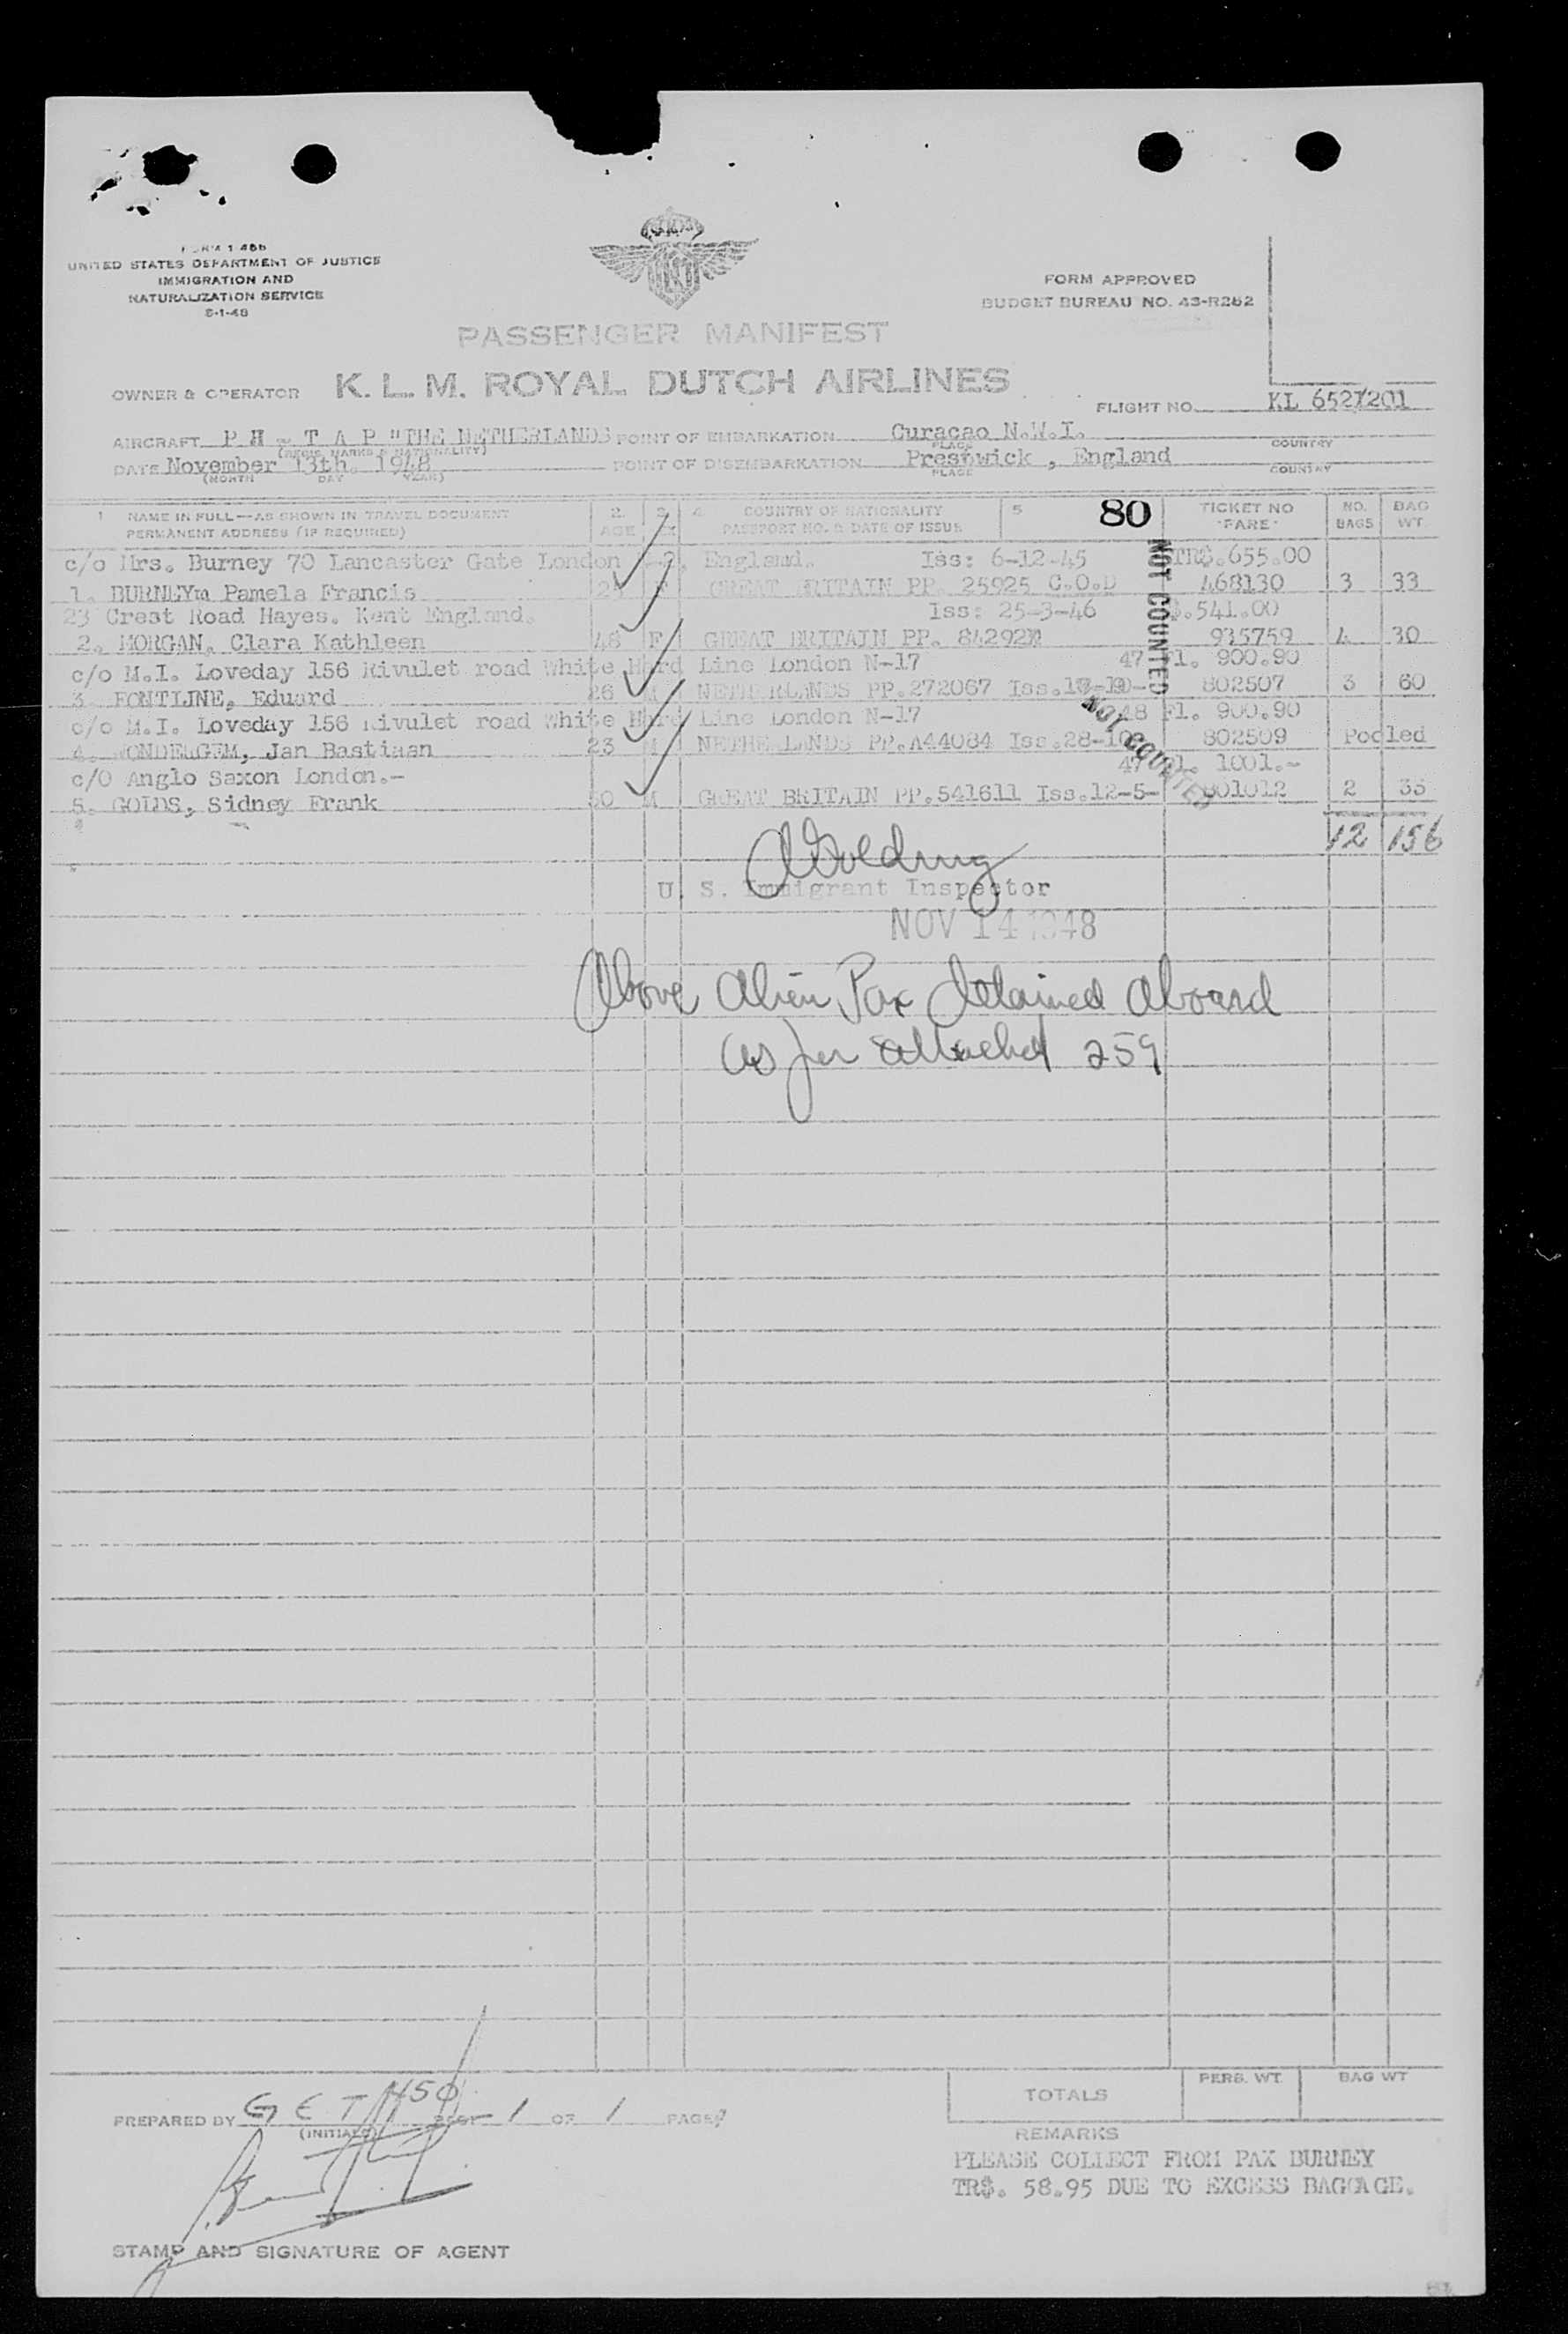 FORM I-466
UNITED STATES DEPARTMENT OF JUSTICE
IMMIGRATION AND
NATURALIZATION SERVICE
8-1-48
FORM APPROVED
BUDGET BUREAU NO. 43-R262
PASSENGER MANIFEST
OWNER & OPERATOR K. L. M. ROYAL DUTCH AIRLINES
FLIGHT NO. KL 652/201
AIRCRAFT P H - T A P "THE NETHERLANDS POINT OF EMBARKATION Curacao N.W.I.
(REGIS. MARKS & NATIONALITY) PLACE COUNTRY
DATE November 13th. 1948 POINT OF DISEMBARKATION Prestwick , England
(MONTH DAY YEAR) PLACE COUNTRY
1 NAME IN FULL—AS SHOWN IN TRAVEL DOCUMENT 2. 3. 4. COUNTRY OF NATIONALITY 5 80 TICKET NO NO. BAG
PERMANENT ADDRESS (IF REQUIRED) AGE SEX PASSPORT NO. & DATE OF ISSUE "FARE" BAGS WT.
c/o Mrs. Burney 70 Lancaster Gate London -2. England. Iss: 6-12-45 TR$.655.00
1. BURNEYm Pamela Francis F GREAT BRITAIN PP. 25925 C.O.D 468130 3 33
23 Crest Road Hayes. Kent England. Iss: 25-3-46 $.541.00
2. MORGAN, Clara Kathleen 48 F GREAT BRITAIN PP. 84292 935759 4 30
c/o M.I. Loveday 156 Rivulet road White Hard Line London N-17 47 Fl. 900.90
3. FONTIJNE, Eduard 26 M NETHERLANDS PP.272067 Iss. 802507 3 60
c/o M.I. Loveday 156 Rivulet road White Hard Line London N-17 48 Fl. 900.90
4. WONDERGEM, Jan Bastiaan 23 M NETHERLANDS PP.A44084 Iss.28-10- 802509 Pooled
c/o Anglo Saxon London.- 47 Fl. 1001.-
5. GOLDS, Sidney Frank M GREAT BRITAIN PP.541611 Iss.12-5- 801012 2 33
NOT COUNTED
NOT COUNTED
12 156
U. S. Immigrant Inspector
NOV 14 1948
Above Alien Pax detained aboard
as per attached 259
PREPARED BY G E T 1 OF 1 PAGES
(INITIALS)
TOTALS PERS. WT. BAG WT
REMARKS
PLEASE COLLECT FROM PAX BURNEY
TR$. 58.95 DUE TO EXCESS BAGGAGE.
STAMP AND SIGNATURE OF AGENT